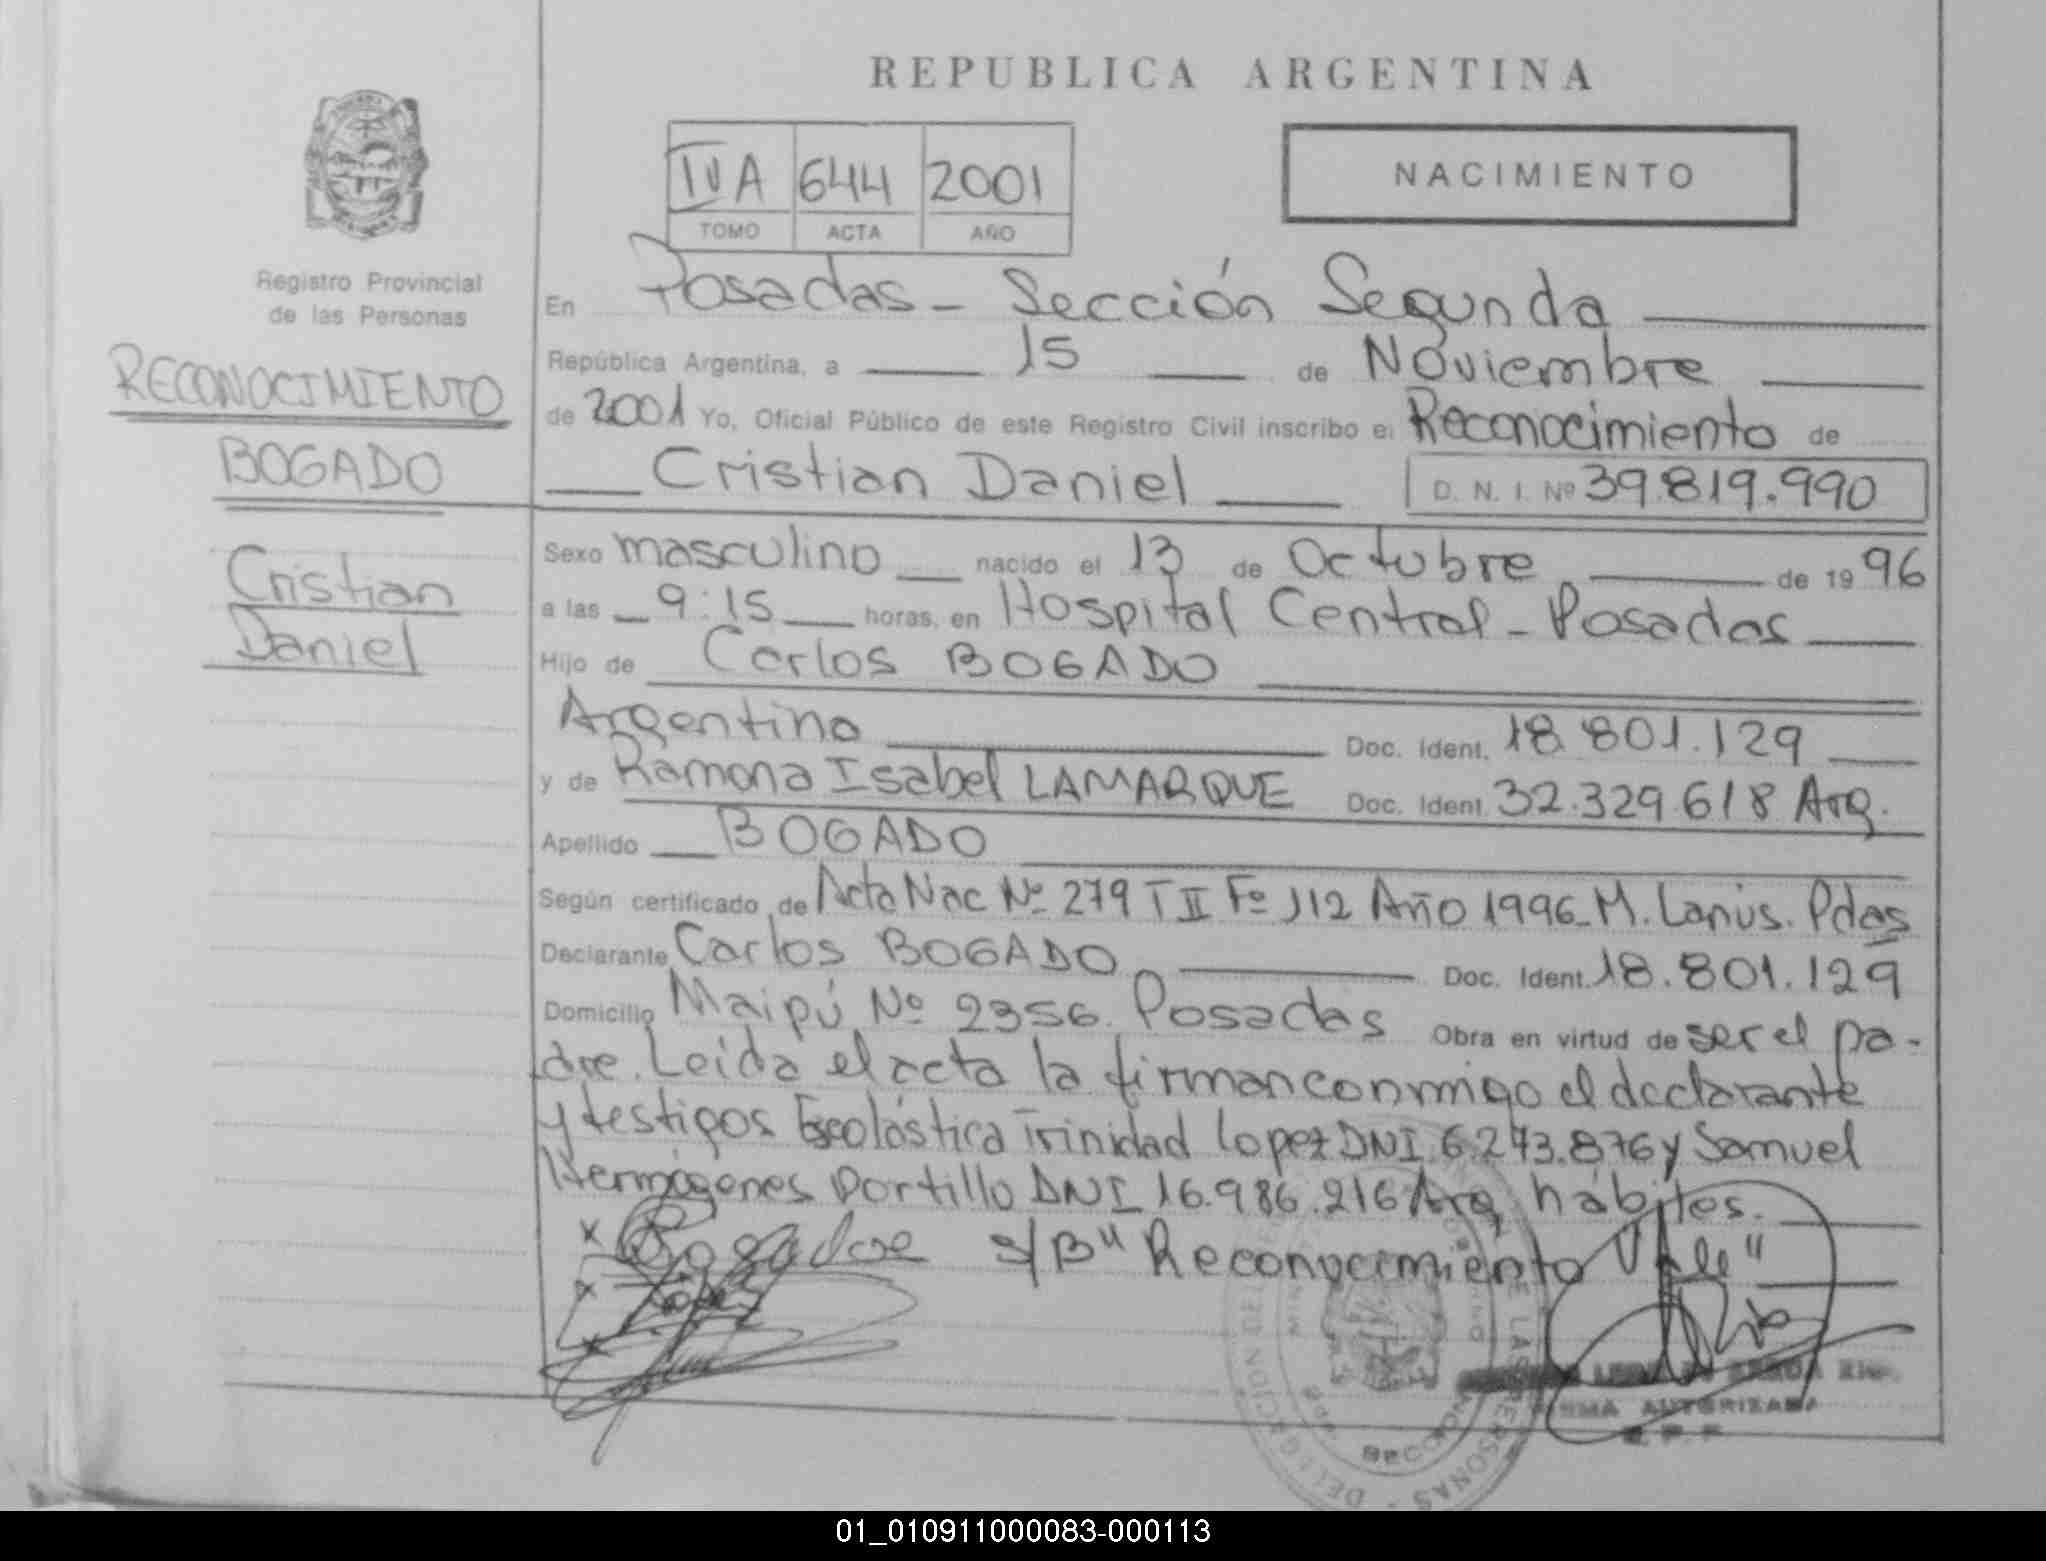 REPUBLICA ARGENTINA
IVA 644 2001
TOMO ACTA AÑO
NACIMIENTO
Registro Provincial
de las Personas
RECONOCIMIENTO
BOGADO
Cristian
Daniel
En Posadas - Sección Segunda
República Argentina, a 15 de Noviembre
de 2001 Yo, Oficial Público de este Registro Civil inscribo el Reconocimiento de
Cristian Daniel D. N. I. Nº 39.819.990
Sexo masculino nacido el 13 de Octubre de 19 96
a las 9:15 horas, en Hospital Central - Posadas
Hijo de Carlos BOGADO
Argentino Doc. Ident. 18.801.129
y de Ramona Isabel LAMARQUE Doc. Ident. 32.329.618 Arg.
Apellido BOGADO
Según certificado de Acta Nac Nº 279 T II Fº 112 Año 1996 - M. Lanús. Pdas
Declarante Carlos BOGADO Doc. Ident. 18.801.129
Domicilio Maipú Nº 2356. Posadas Obra en virtud de ser el pa-
dre. Leída el acta la firman conmigo el declarante
y testigos Escolástica Trinidad Lopez DNI 6.273.876 y Samuel
Hermógenes Portillo DNI 16.986.216 Arg. hábiles.
S/B "Reconocimiento Vale"
FIRMA AUTORIZADA
01_010911000083-000113